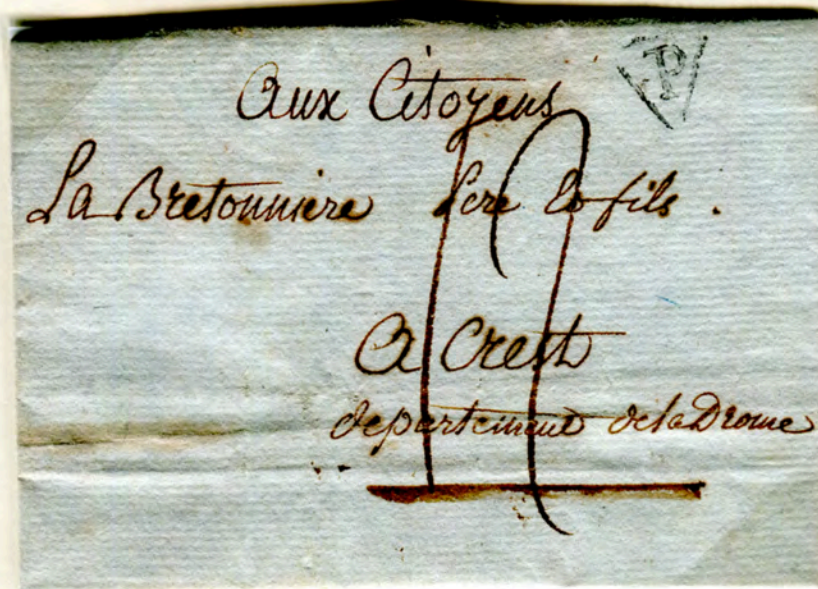 P
Aux Citoyens
La Bretonniere Pere & fils .
A Crest
departement de la Drome